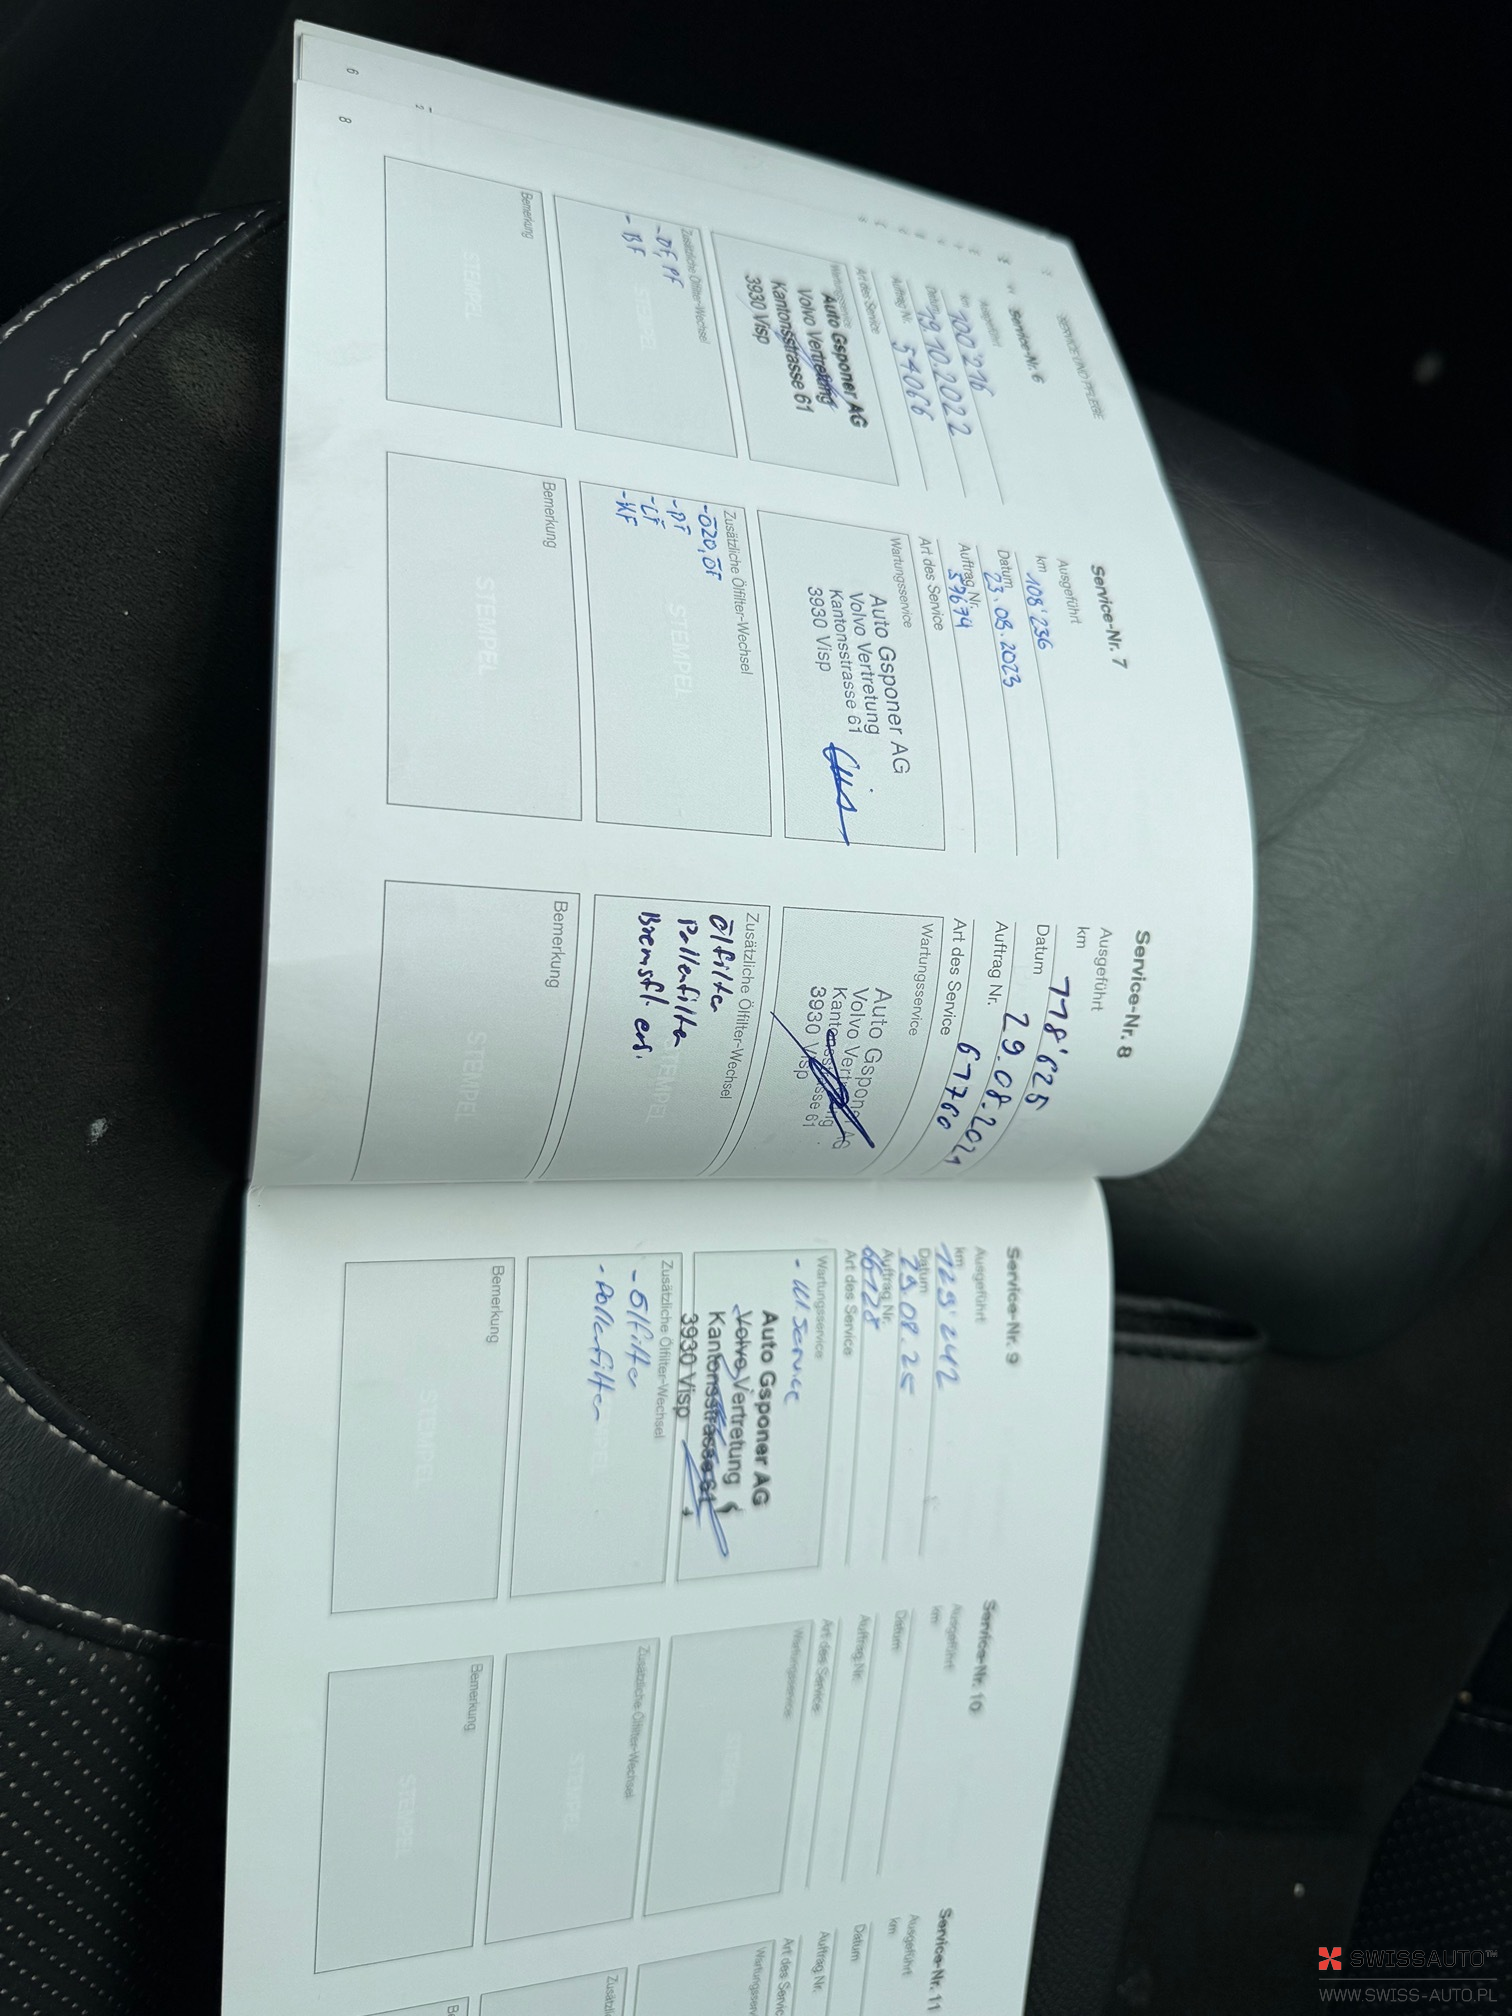 6
8
SERVICE UND PFLEGE
Service-Nr. 6
Ausgeführt
km 100'216
Datum 19.10.2022
Auftrag Nr. 54066
Art des Service
Wartungsservice
Auto Gsponer AG
Volvo Vertretung
Kantonsstrasse 61
3930 Visp
Zusätzliche Ölfilter-Wechsel
- BF
STEMPEL
Bemerkung
STEMPEL
Service-Nr. 7
Ausgeführt
km 108'236
Datum 23.08.2023
Auftrag Nr. 59674
Art des Service
Wartungsservice
Auto Gsponer AG
Volvo Vertretung
Kantonsstrasse 61
3930 Visp
Zusätzliche Ölfilter-Wechsel
- Ö20, ÖF
- PF
- LF
- KF
STEMPEL
Bemerkung
STEMPEL
Service-Nr. 8
Ausgeführt
km 118'625
Datum 29.08.2024
Auftrag Nr. 67760
Art des Service
Wartungsservice
Auto Gsponer AG
Volvo Vertretung
Kantonsstrasse 61
3930 Visp
Zusätzliche Ölfilter-Wechsel
Ölfilter
Pollenfilter
Bremsfl. ers.
STEMPEL
Bemerkung
STEMPEL
Service-Nr. 9
Ausgeführt
km 129'242
Datum 29.08.25
Auftrag Nr. 66128
Art des Service
Wartungsservice
- kl. Service
Auto Gsponer AG
Volvo Vertretung
Kantonsstrasse 61
3930 Visp
Zusätzliche Ölfilter-Wechsel
- Ölfilter
- Pollenfilter
STEMPEL
Bemerkung
STEMPEL
Service-Nr. 10
Ausgeführt
km
Datum
Auftrag Nr.
Art des Service
Wartungsservice
STEMPEL
Zusätzliche Ölfilter-Wechsel
STEMPEL
Bemerkung
STEMPEL
Service-Nr. 11
Ausgeführt
km
Datum
Auftrag Nr.
Art des Servic
Wartungsserv
Zusätzli
Be
SWISSAUTO™
WWW.SWISS-AUTO.PL